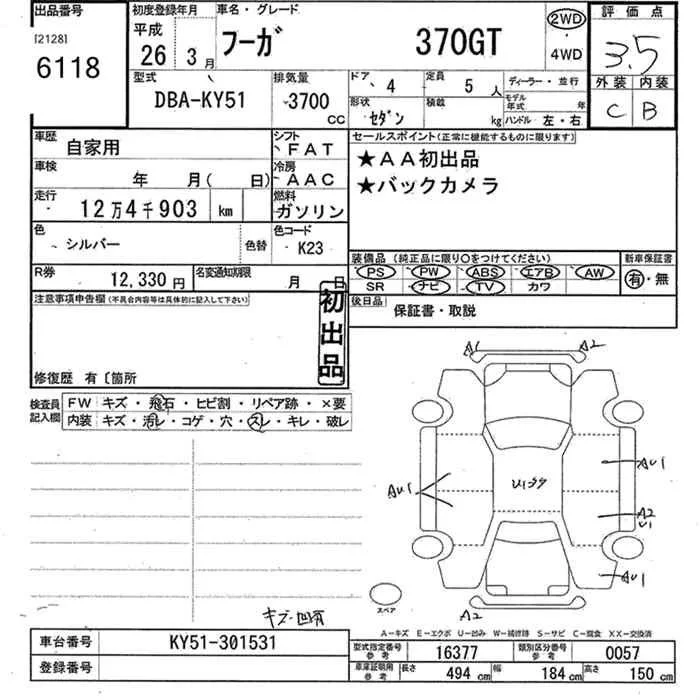 出品番号
[2128]
6118
初度登録年月
平成
26 年 3 月
車名・グレード
フーガ 370GT
2WD
・
4WD
評価点
3.5
外装 内装
C B
型式
DBA-KY51
排気量
3700
CC
ドア 4
定員 5 人
形状 セダン
積載 kg
ディーラー・並行
モデル年式 年
ハンドル 左・右
車歴 自家用
シフト FAT
セールスポイント(正常に機能するものに限ります)
★AA初出品
★バックカメラ
車検 年 月( 日)
冷房 AAC
走行 12万4千903 km
燃料 ガソリン
色 シルバー 色替
色コード K23
装備品 (純正品に限り○をつけてください)
PS PW ABS エアB AW
SR ナビ TV カワ
新車保証書
有・無
R券 12,330 円
名変通知期限 月 日
後日品 保証書・取説
注意事項申告欄(不具合内容等は具体的に記入して下さい)
初出品
修復歴 有〔箇所
検査員
記入欄
FW キズ・飛石・ヒビ割・リペア跡・×要
内装 キズ・汚レ・コゲ・穴・スレ・キレ・破レ
A1 A2
AU1
U1
AU1
A2
U1
AU1
A2
スペア
キズ・凹有
A−キズ E−エクボ U−凹み W−補修跡 S−サビ C−腐食 XX−交換済
車台番号 KY51-301531
登録番号
型式指定番号
参考
16377
類別区分番号
参考
0057
車庫証明用
参考
長さ 494 cm 幅 184 cm 高さ 150 cm